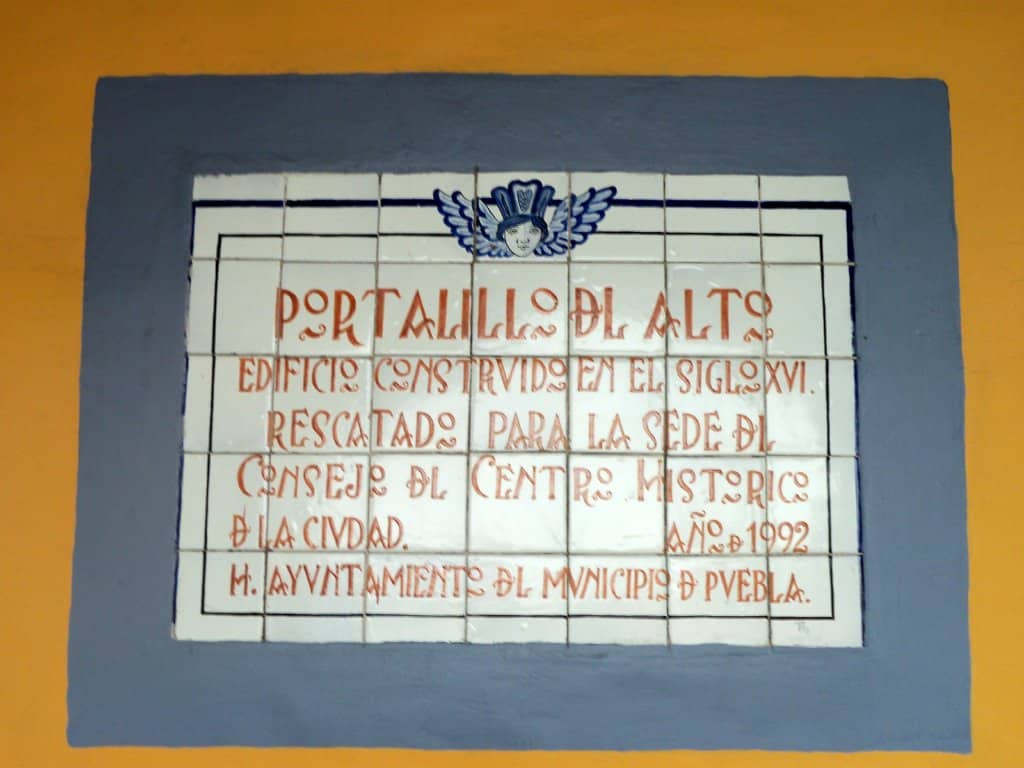 PORTALILLO DEL ALTO
EDIFICIO CONSTRVIDO EN EL SIGLO XVI.
RESCATADO PARA LA SEDE DEL
CONSEJO DEL CENTRO HISTORICO
DE LA CIVDAD. AÑO DE 1992
H. AYVNTAMIENTO DEL MVNICIPIO DE PVEBLA.